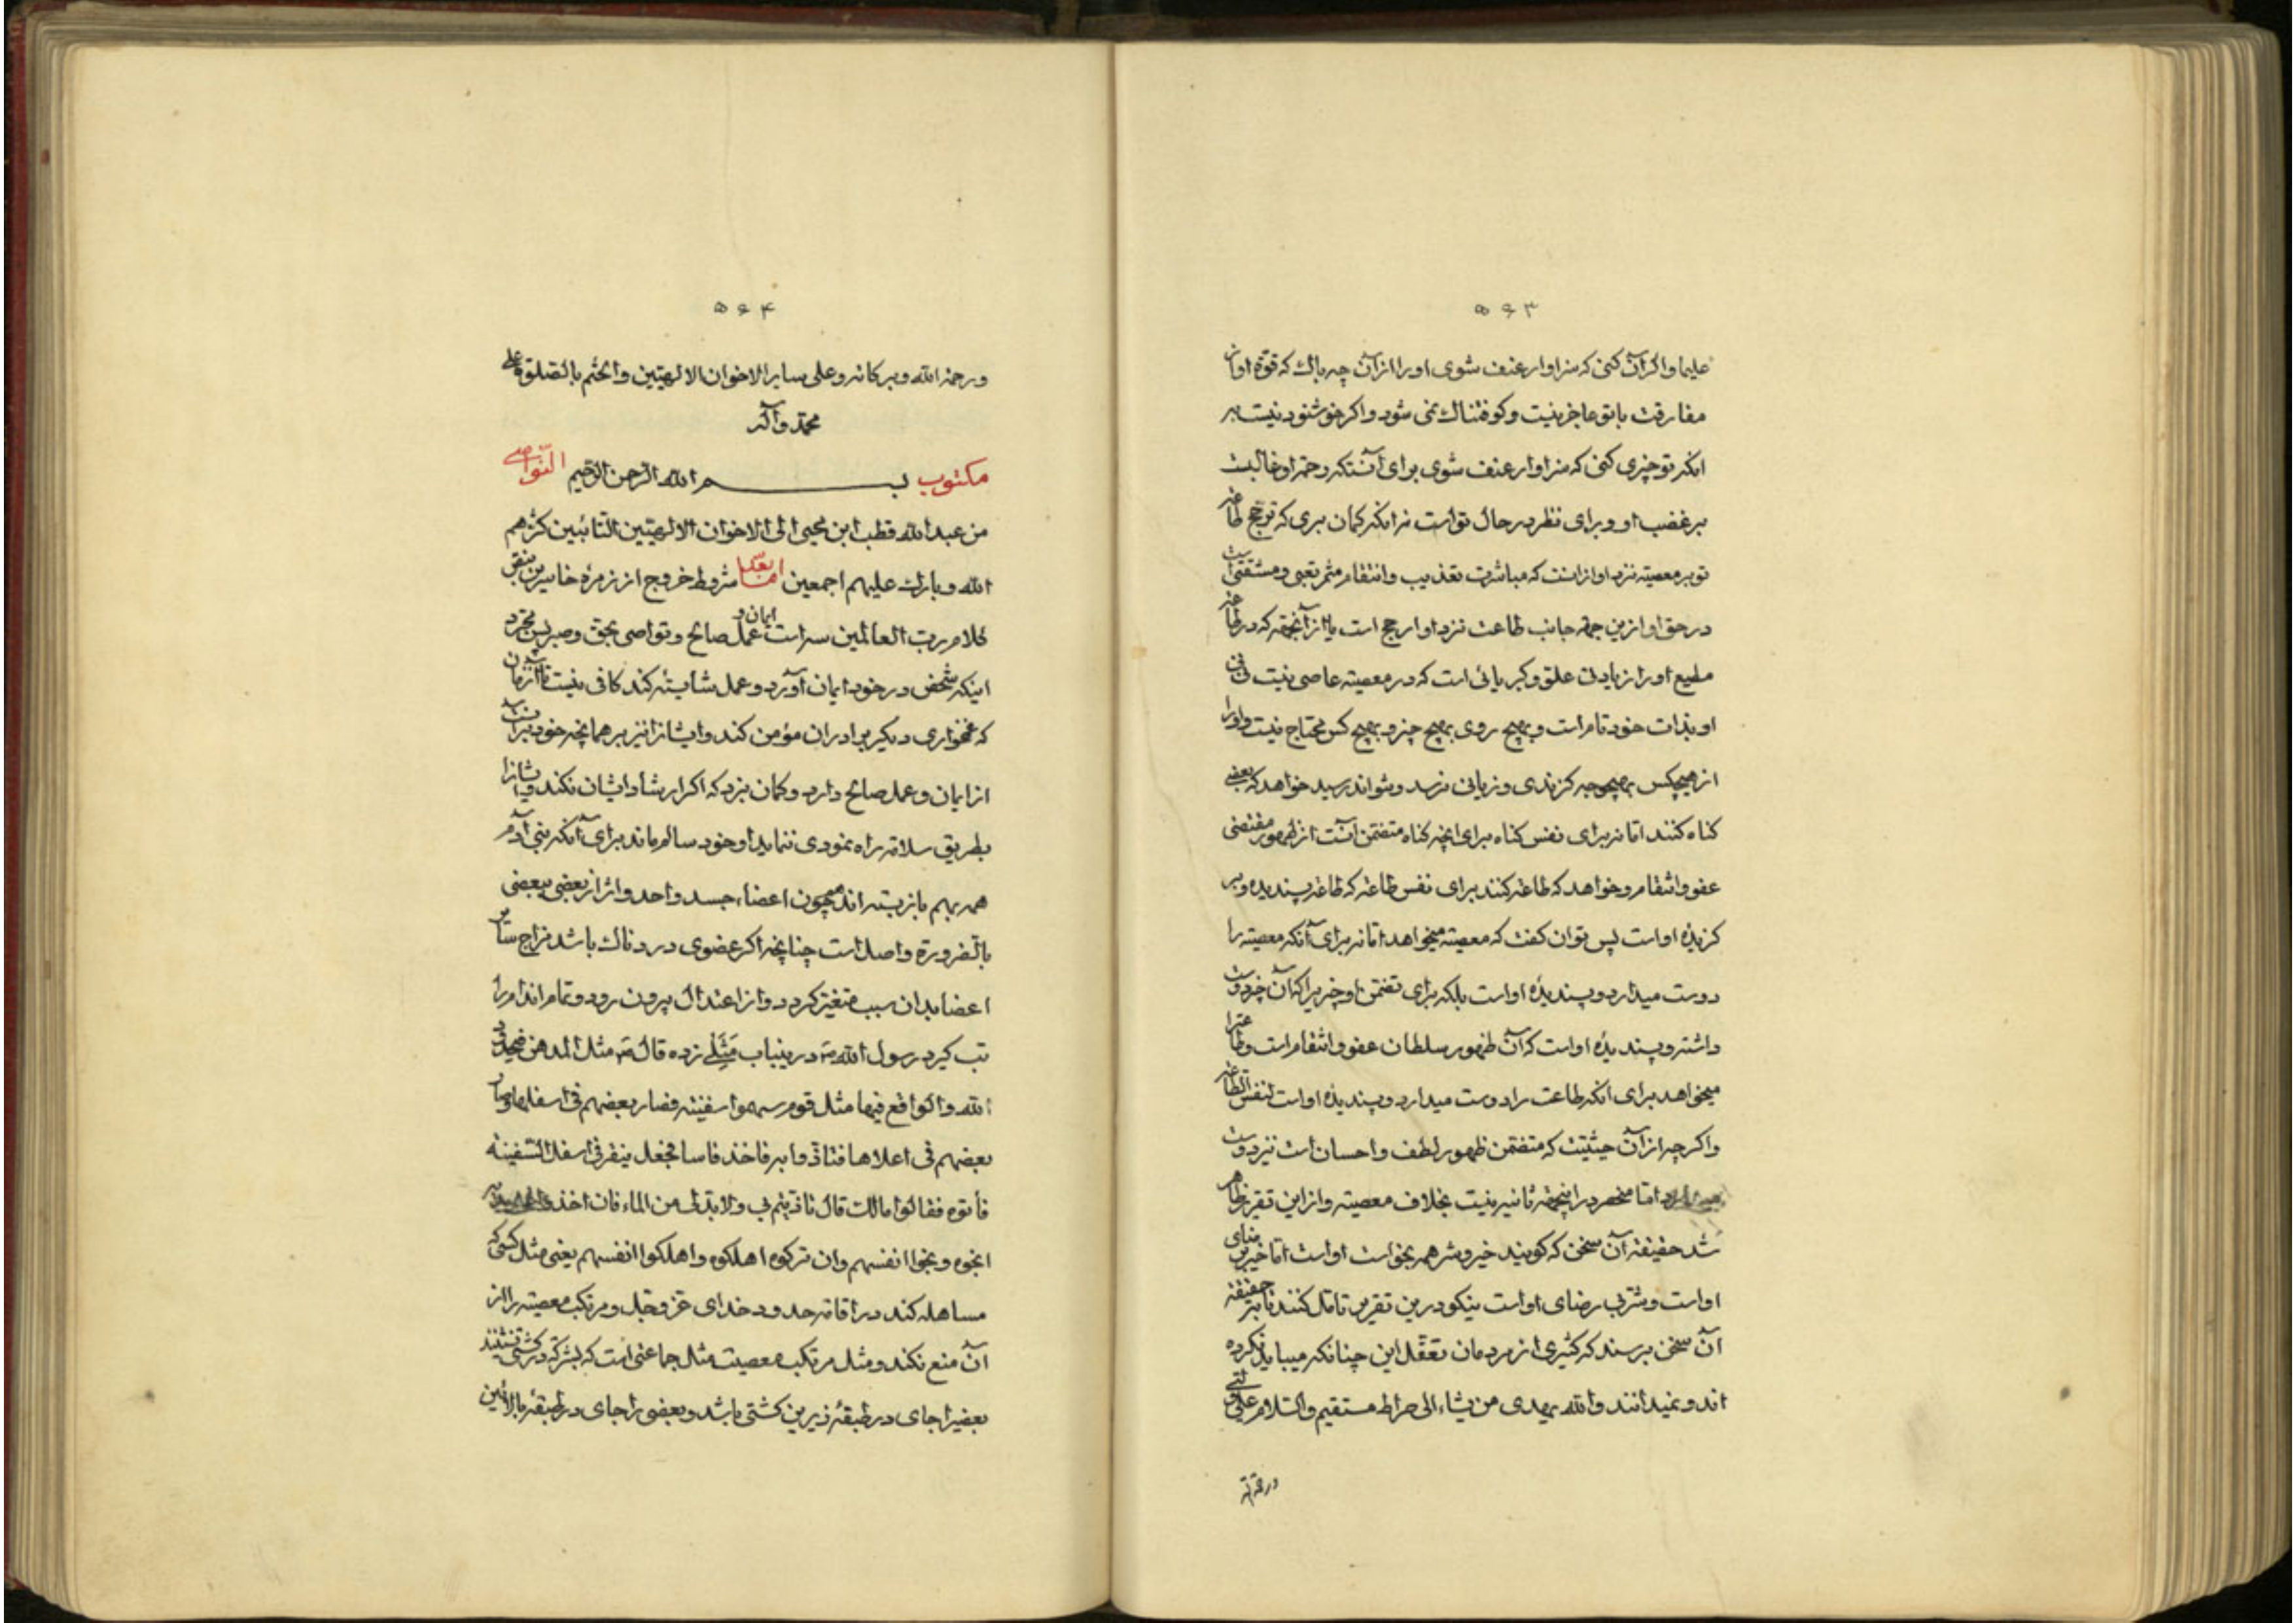 ۵۶۳
علیها و اگر آن کنی که سزاوار عنف شوی او را از آن چه باک که قوة او از
مفارقت با تو عاجز نیست و کوفتناک نمی شود و اگر خوشنود نیست بر
انکه تو چیزی کنی که سزاوار عنف شوی برای آنستکه رحمة او غالبست
بر غضب او و برای نظر در حال تو است نه انکه کمان بری که ترجح طاعة
تو بر معصیته نزد او از انست که مباشرت تعذیب و انتقام مثمر تعبی و مشقتی است
در حق او ازین جهة جانب طاعت نزد او ارجح است یا از آنجهة که در طاعة
مطیع او را زیادتی علو و کبریائی است که در معصیته عاصی نیست
او بذات خود تام است و بهیچ روی بهیچ چیز و بهیچ کس محتاج نیست و او را
از هیچکس بهیچوجه کزندی و زیانی نرسد و نتواند رسید خواهد که بعضی
کناه کنند اما نه برای نفس کناه برای انچه کناه متضمن آنست از ظهور مقتضی
عفو و انتقام و خواهد که طاعة کنند برای نفس طاعة که طاعة پسندیده و بر
کزیدهٔ او است پس توان کفت که معصیته میخواهد اما نه برای آنکه معصیته را
دوست میدارد و پسندیدهٔ او است بلکه برای تضمن او چیزیرا که آن چیز دوست
داشته و پسندیدهٔ او است که آن ظهور سلطان عفو و انتقام است و طاعة را
میخواهد برای انکه طاعت را دوست میدارد و پسندیدهٔ او است لنفس الطاعة
و اکر چه از آن حیثیت که متضمن ظهور لطف و احسان است نیز دوست
میدارد اما منحصر در اینجهة ثانیه نیست بخلاف معصیته و از این تقریر ظاهر
شد حقیقة آن سخن که کویند خیر و شر همه بخواست او است اما خیر برضای
او است و شر بی رضای او است نیکو درین تقریر تامل کنند تا بر حقیقة
آن سخن برسند که کثیری از مردمان تعقل این چنانکه میباید نکرده
اند و نمیدانند و الله یهدی من یشاء الی صراط مستقیم و السلام علی
۵۶۴
و رحمة الله و برکاته و علی سایر الاخوان الالهیین و اختم بالصلوة علی
محمد و آله
مکتوب بسم الله الرحمن الرحیم التواصی
من عبد الله قطب ابن یحیی الی الاخوان الالهیین التائبین کثرهم
الله و بارک علیهم اجمعین اما بعد شروط خروج از زمرهٔ خاسرین بنص
کلام رب العالمین سه است ایمان و عمل صالح و تواصی بحق و صبر پس مجرد
اینکه شخص در خود ایمان آورد و عمل شایسته کند کافی نیست تا آنزمان
که غمخواری دیکر برادران مؤمن کند و ایشانرا نیز بر همانچه خود بر آنست
از ایمان و عمل صالح دارد و کمان نبرد که اکر ارشاد ایشان نکند و ایشانرا
بطریق سلامة راه نمودی ننماید او خود سالم ماند برای آنکه بنی آدم
همه بهم باز بسته اند همچون اعضاء جسد واحد و اثر از بعضی ببعضی
بالضرورة واصل است چنانچه اکر عضوی دردناک باشد مزاج سایر
اعضا بدان سبب متغیر کردد و از اعتدال بیرون رود و تمام اندام را
تب کیرد رسول الله ص درینباب مَثَلی زده قال ص مثل المدهن فی حدود
الله و الواقع فیها مثل قوم سهموا سفینة فصار بعضهم فی اسفلها و صار
بعضهم فی اعلاها فتاذوا به فاخذ فاسا فجعل ینقر فی اسفل السفینة
فأتوه فقالوا مالک قال تاذیتم بی و لا بد لی من الماء فان اخذوا علی یدیه
انجوه و نجوا انفسهم و ان ترکوه اهلکوه و اهلکوا انفسهم یعنی مثل کسی که
مساهله کند در اقامة حدود خدای عز و جل و مرتکب معصیته را از
آن منع نکند و مثل مرتکب معصیت مثل جماعتی است که بشرکة در کشتی نشینند
بعضیرا جای در طبقهٔ زیرین کشتی باشد و بعضی را جای در طبقهٔ بالائین